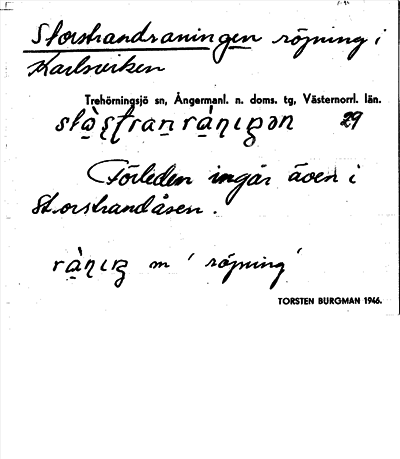 Storstrandraningen röjning i
Karlsviken
Trehörningsjö sn, Ångermanl. n. doms. tg, Västernorrl. län.
29
Förleden ingår även i
Storstrandåsen.
m ' röjning '
TORSTEN BURGMAN 1946.